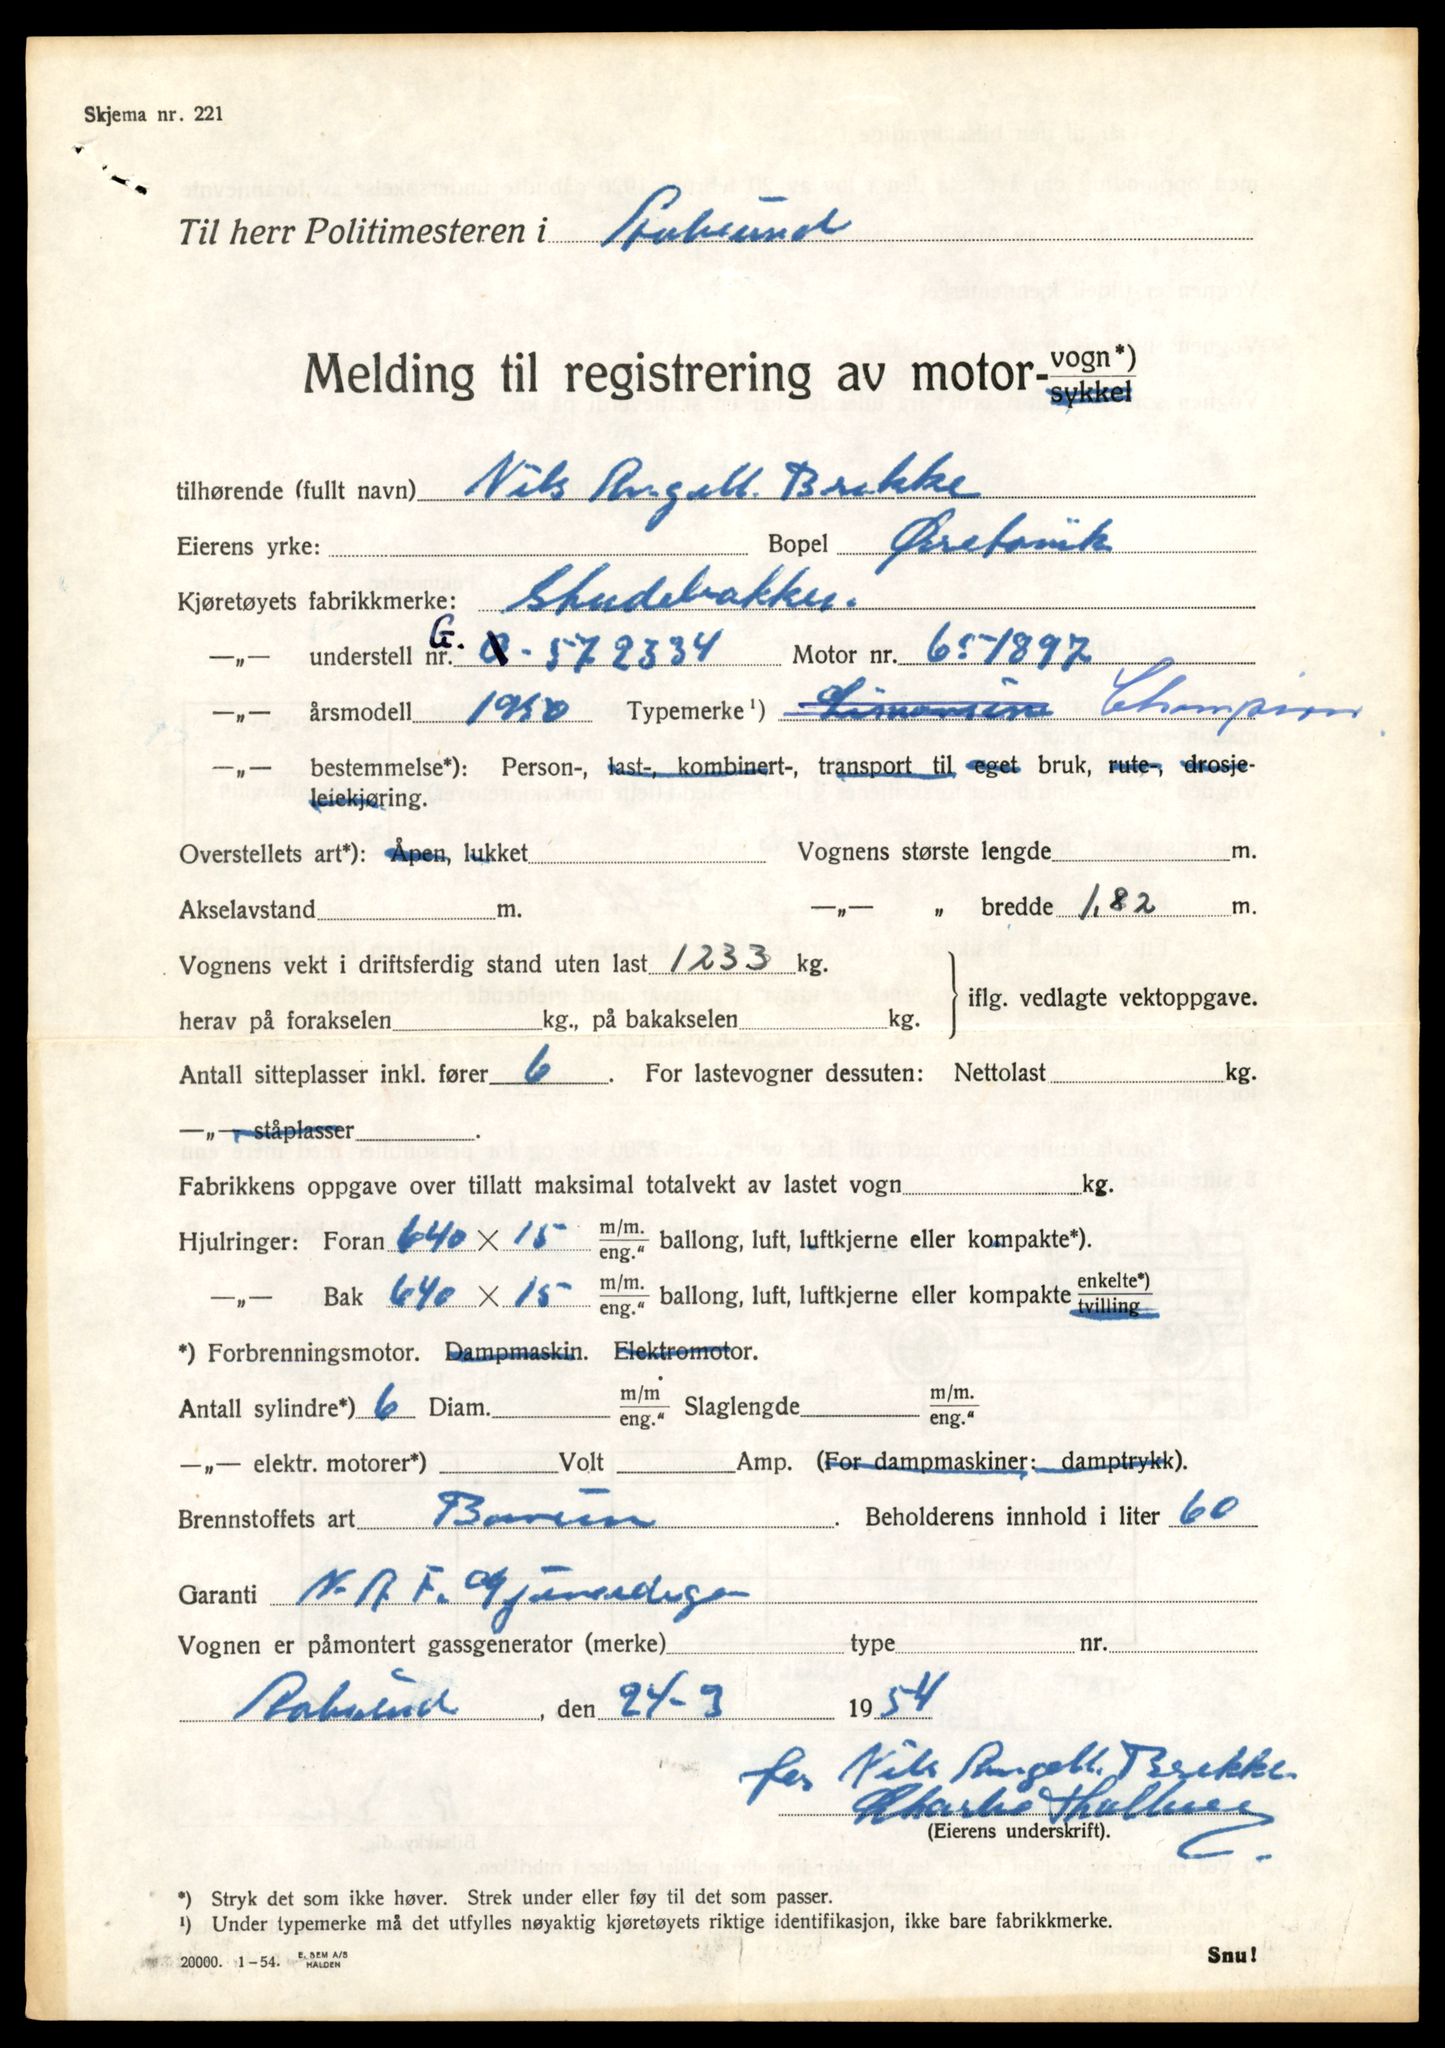 Skjema nr. 221
Til herr Politimesteren i Aalesund
Melding til registrering av motor-vogn*)
sykkel
tilhørende (fullt navn) Nils Angell Brekke
Eierens yrke: Bopel Ørstavik
Kjøretøyets fabrikkmerke: Studebakker.
—„— understell nr. G. - 572334 Motor nr. 651897
—„— årsmodell 1950 Typemerke ¹) Limousine Champion
—„— bestemmelse*): Person-, last-, kombinert-, transport til eget bruk, rute-, drosje-
leiekjøring.
Overstellets art*): Åpen, lukket Vognens største lengde m.
Akselavstand m. —„— „ bredde 1,82 m.
Vognens vekt i driftsferdig stand uten last 1233 kg.
iflg. vedlagte vektoppgave.
herav på forakselen kg., på bakakselen kg.
Antall sitteplasser inkl. fører 6. For lastevogner dessuten: Nettolast kg.
—„— ståplasser.
Fabrikkens oppgave over tillatt maksimal totalvekt av lastet vogn kg.
Hjulringer: Foran 640 × 15 m/m. eng.“ ballong, luft, luftkjerne eller kompakte*).
—„— Bak 640 × 15 m/m. eng.“ ballong, luft, luftkjerne eller kompakte enkelte*) tvilling
*) Forbrenningsmotor. Dampmaskin. Elektromotor.
Antall sylindre*) 6 Diam. m/m eng.“ Slaglengde m/m. eng.“
—„— elektr. motorer*) Volt Amp. (For dampmaskiner: damptrykk).
Brennstoffets art Bensin. Beholderens innhold i liter 60
Garanti N. A. F.
Vognen er påmontert gassgenerator (merke) type nr.
Aalesund, den 24-3 1954
for Nils Angell Brekke
(Eierens underskrift).
*) Stryk det som ikke høver. Strek under eller føy til det som passer.
¹) Under typemerke må det utfylles nøyaktig kjøretøyets riktige identifikasjon, ikke bare fabrikkmerke.
20000. 1-54. E. SEM A/S HALDEN
Snu!